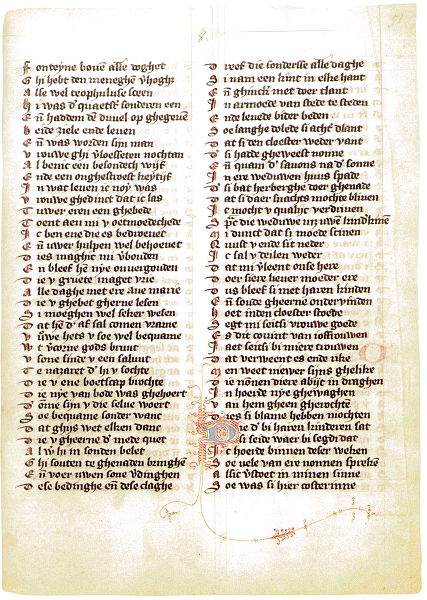 F onteyne bouē alle doghet
G hi hebt den meneghē v'hoghꝫ
A lse wel teophuluse sceen
H i was d' quaetst' sonderen een
E ñ haddem dē duuel op ghegeuē
B eide ziele ende leuen
E ñ was worden sijn man
V rouwe ghi v'loesseten nochtan
A l benic een besondech wijf
E nde een onghetroest keytijf
I n wat leuen ic noy was
V rouwe ghedinct dat ic las
T uwer eren een ghebede
T oent aen mi v oetmoedechede
I c ben ene die es bedroeuet
E ñ uwer hulpen wel behoeuet
D ies maghic mi v'bouden
E n bleef hē nye onuergouden
D ie v gruete maget vrie
A lle daghe met ere aue marie
D ie v ghebet gherne lesen
S i moeghen wel seker wesen
D at hē d' af sal comen vrame
V rouwe hets v soe wel bequame
W t v'corne gods bruut
V sone sinde v een saluut
T e nazaret d' hi v sochte
D ie v ene boetscap brochte
D ie nye van bode was ghehoert
D oīne sijn v die selue woert
S oe bequame sonder wanc
D at ghijs wet elken danc
D ie v gheerne d' mede quet
A l w' hi in sonden belet
G hi souten te ghenaden bringhē
E ñ voer uwen sone v'dinghen
D ese bedinghe eñ dese claghe
D reef die sonderse alle daghe
S i nam een kint in elke hant
E ñ ghincker met doer tlant
I n armoede van stede te steden
E nde leuede bider beden
S oe langhe dolede si achtˀ dlant
D at si den cloester weder vant
D ' si hadde gheweest nonne
E ñ quam d' sauonts na d' sonne
I n ere weduwen huus spade
D ' si bat herberghe doer ghenade
D at si daer snachts mochte bliuen
I c mocht v qualijc verdriuen
S prac die weduwe met uwē kindekinē
M i dunct dat si moede scinen
R uust v ende sit neder
I c sal v deilen weder
D at mi v'leent onse here
D oer sijere lieuer moeder ere
D us bleef si met haren kinden
E ñ soude gheerne onderuinden
H oet inden cloester stoede
S egt mi seitsi vrouwe goede
E s dit couint van ioffrouwen
J aet seitsi bi miere trouwen
D at verweent es ende rike
M en weet niewer sijns ghelike
D ie nōnen diere abijt in draghen
I n hoerde nye ghewaghen
V an hem gheen gherochte
D ies si blame hebben mochten
D ie d' bi haren kinderen sat
S i seide waer bi segdi dat
I c hoerde binnen deser weken
S oe vele van ere nonnen sprekē
A lsic v'stoet in minen sinne
S oe was si hier costerinne